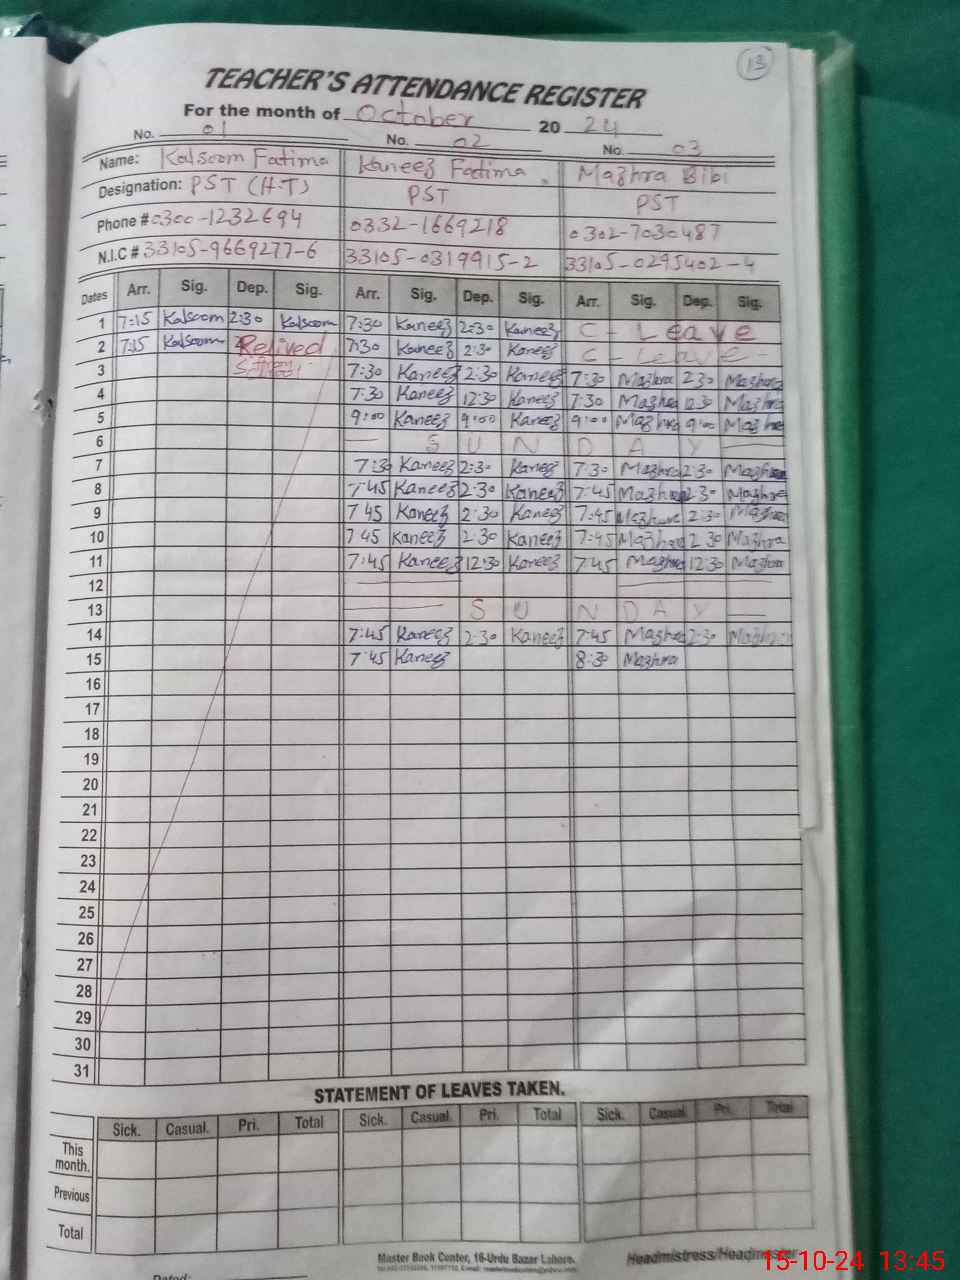 13
TEACHER'S ATTENDANCE REGISTER
For the month of October 2024
No. 01 No. 02 No. 03
Name: Kalsoom Fatima Kaneez Fatima Mazhra Bibi
Designation: PST (H.T) PST PST
Phone # 0300-1232694 0332-1669218 0302-7030487
N.I.C # 33105-9669277-6 33105-0319915-2 33105-0295402-4
Dates Arr. Sig. Dep. Sig. Arr. Sig. Dep. Sig. Arr. Sig. Dep. Sig.
1 7:15 Kalsoom 2:30 Kalsoom 7:30 Kaneez 2:30 Kaneez C - Leave
2 7:15 Kalsoom Relived 7:30 Kaneez 2:30 Kaneez C - Leave -
3 7:30 Kaneez 2:30 Kaneez 7:30 Mazhra 2:30 Mazhra
4 7:30 Kaneez 12:30 Kaneez 7:30 Mazhra 12:30 Mazhra
5 9:00 Kaneez 9:00 Kaneez 9:00 Mazhra 9:00 Mazhra
6 — S U N D A Y —
7 7:30 Kaneez 2:30 Kaneez 7:30 Mazhra 2:30 Mazhra
8 7:45 Kaneez 2:30 Kaneez 7:45 Mazhra 2:30 Mazhra
9 7 45 Kaneez 2:30 Kaneez 7:45 Mazhra 2:30 Mazhra
10 7 45 Kaneez 2:30 Kaneez 7:45 Mazhra 2 30 Mazhra
11 7:45 Kaneez 12:30 Kaneez 7:45 Mazhra 12:30 Mazhra
12
13 — S U N D A Y —
14 7:45 Kaneez 2:30 Kaneez 7:45 Mazhra 2:30 Mazhra
15 7:45 Kaneez 8:30 Mazhra
16
17
18
19
20
21
22
23
24
25
26
27
28
29
30
31
STATEMENT OF LEAVES TAKEN.
Sick. Casual. Pri. Total Sick. Casual. Pri. Total Sick. Casual. Pri. Total
This month.
Previous
Total
Master Book Center, 16-Urdu Bazar Lahore.
Headmistress/Headmaster
Dated:
15-10-24 13:45